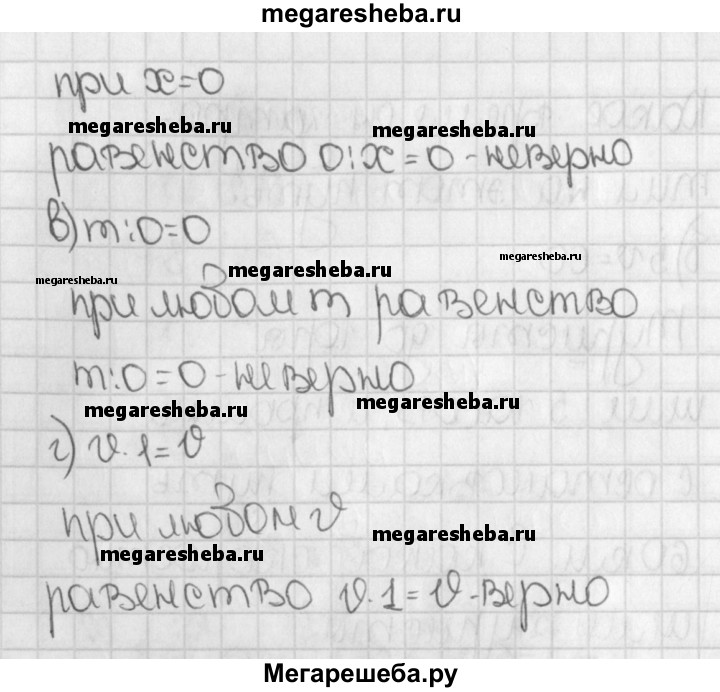 megaresheba.ru
при x=0
megaresheba.ru megaresheba.ru
равенство 0:x=0-неверно
в) m:0=0
megaresheba.ru
megaresheba.ru megaresheba.ru
при любом m равенство
m:0=0-неверно
megaresheba.ru megaresheba.ru
г) v·1=v
при любом v
megaresheba.ru
megaresheba.ru
равенство v·1=v-верно
Мегарешеба.ру